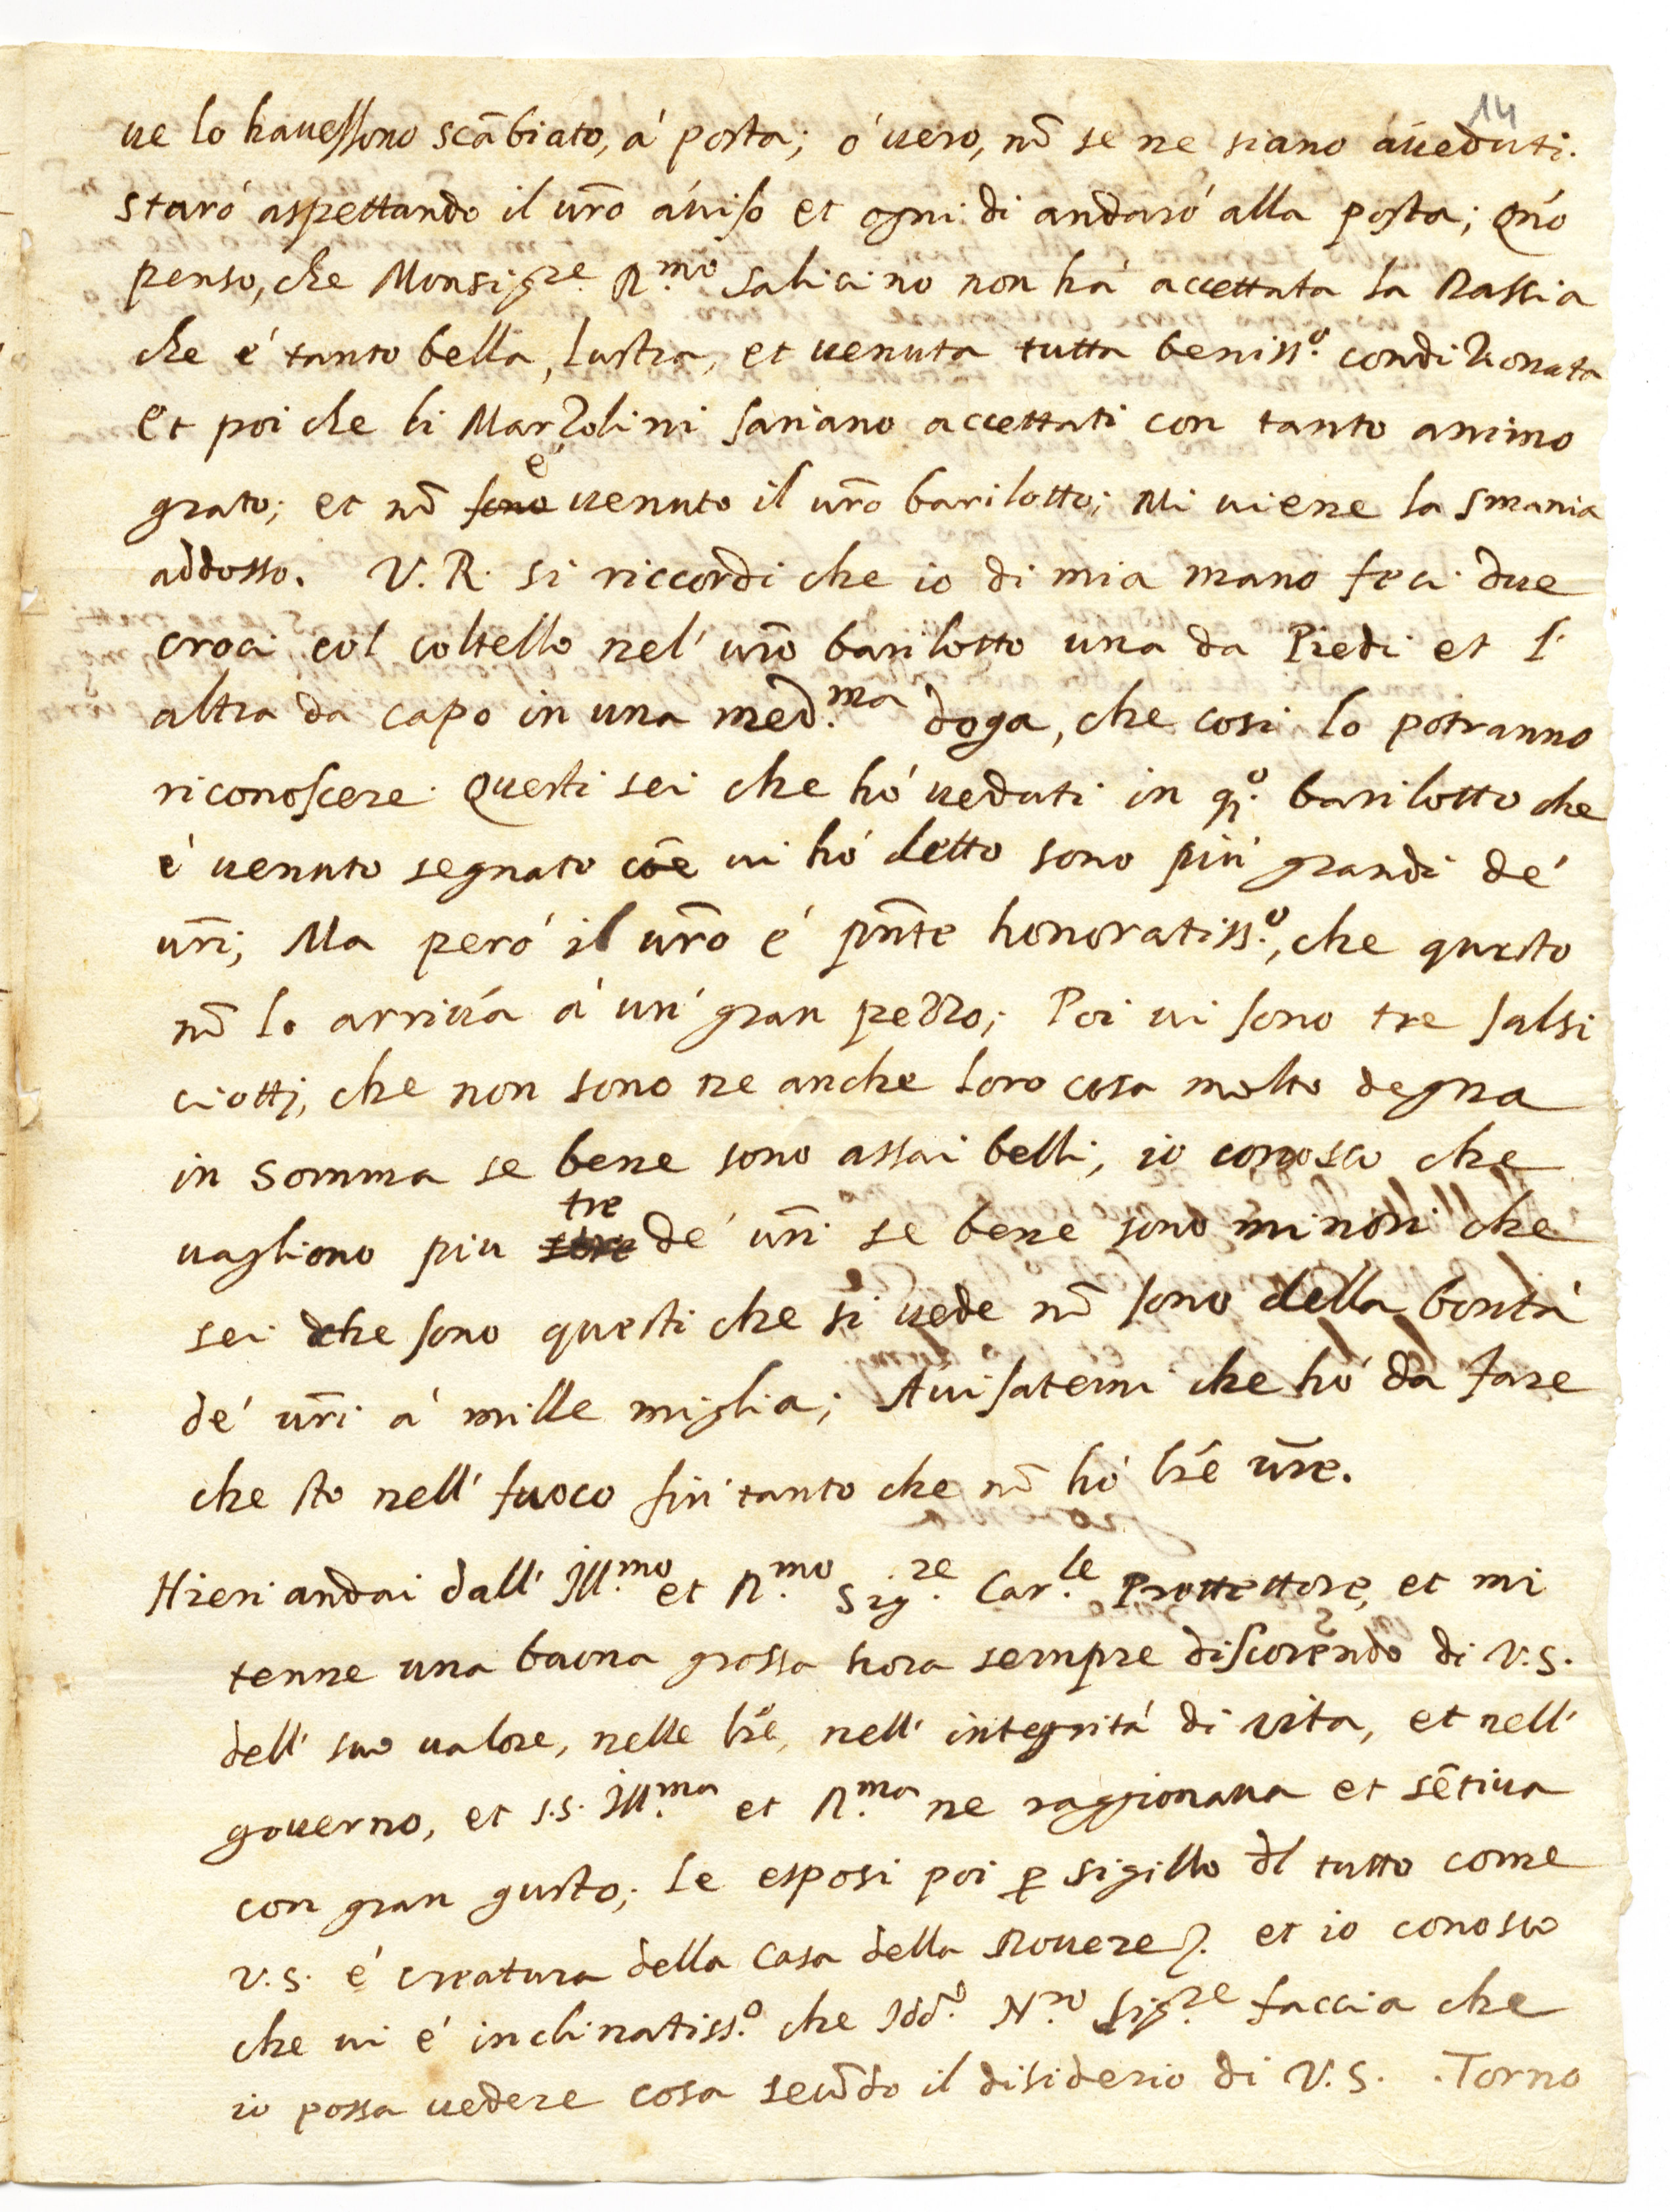 14
ue lo hauessono scābiato, á posta; ó uero, nō se ne siano áueduti.
staró aspettando il uro áuiso et ogni di andaró alla posta; Qn̄o
penso, che Monsig.re R.mo Salicino non há accettata la Rassia
che é tanto bella, lustra, et uenuta tutta beniss.o condizionata
et poi che li Marzolini sariano accettati con tanto animo
grato; et nō sono é uenuto il ur̄o barilotto; Mi uiene la smania
addosso. V.R. si riccordi che io di mia mano feci due
croci col coltello nel' ur̄o barilotto una da Piedi et l'
altra da capo in una med.ma doga, che cosi lo potranno
riconoscere. Questi sei che hó ueduti in q.o barilotto che
é uenuto segnato cōe ui hó detto sono piú grandi de'
ur̄i; Ma peró il ur̄o é pn̄te honoratiss.o, che questo
nō lo arriuá á un' gran pezzo; Poi ui sono tre salsi
ciotti, che non sono ne anche loro cosa molto degna
in somma se bene sono assai belli; io conosco che
uagliono piu tre de' ur̄i se bene sono minori che
sei che sono questi che si uede nō sono della bontá
de' ur̄i á mille miglia; Auisatemi che hó da fare
che sto nell' fuoco fin' tanto che nō hó lr̄e ur̄e.
Hieri andai dall' Ill.mo et R.mo Sig.re Car.le Prottettore, et mi
tenne una buona grossa hora sempre discorendo di V.S.
dell' suo ualore, nelle lr̄e, nell' integritá di uita, et nell'
gouerno, et S.S. Ill.ma et R.ma ne raggionaua et sētiua
con gran gusto; le esposi poi p sigillo dl tutto come
V.S. é creatura della Casa della Rouere. et io conosco
che ui é inclinatiss.o che Idd.o N.ro Sig.re faccia che
io possa uedere cosa secōdo il disiderio di V.S. . Torno